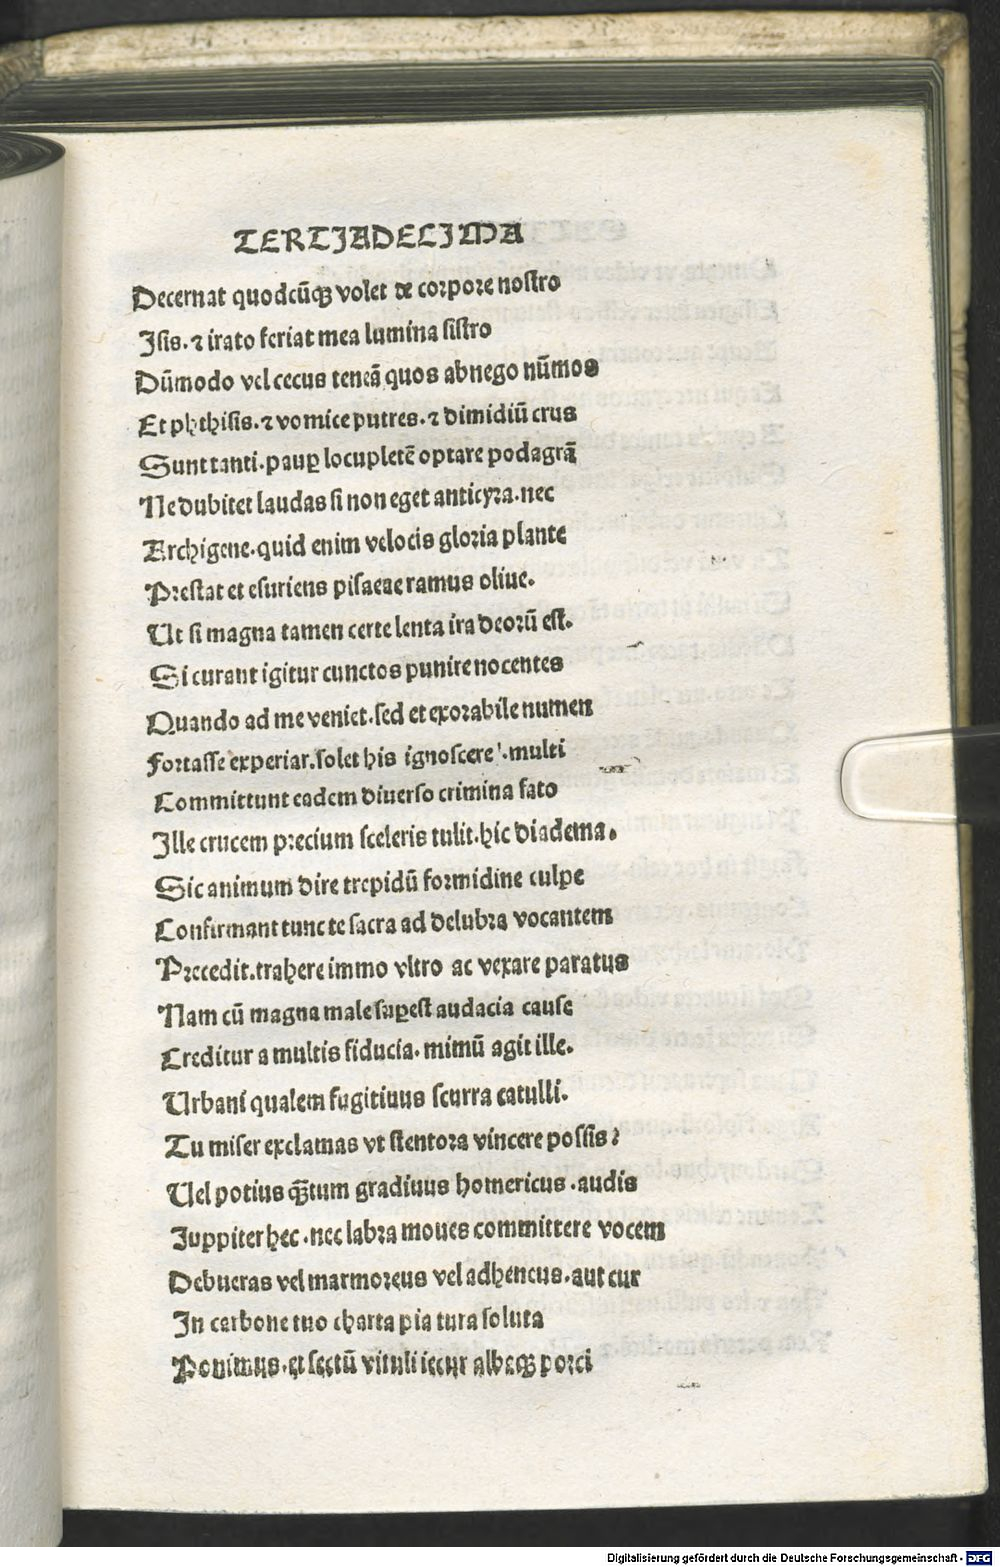 TERTIADECIMA
Decernat quodcũqꝫ volet de corpore nostro
Isis. ⁊ irato feriat mea lumina sistro
Dũmodo vel cecus teneã quos abnego nũmos
Et phthisis. ⁊ vomice putres. ⁊ dimidiũ crus
Sunt tanti. pauꝑ locupletẽ optare podagrã
Ne dubitet laudas si non eget anticyra. nec
Archigene. quid enim velocis gloria plante
Prestat et esuriens pisaeae ramus oliue.
Ut si magna tamen certe lenta ira deorũ est.
Si curant igitur cunctos punire nocentes
Quando ad me veniet. sed et exorabile numen
Fortasse experiar. solet his ignoscere. multi
Committunt eadem diuerso crimina fato
Ille crucem precium sceleris tulit. hic diadema.
Sic animum dire trepidũ formidine culpe
Confirmant tunc te sacra ad delubra vocantem
Precedit. trahere immo vltro ac vexare paratus
Nam cũ magna male suꝑest audacia cause
Creditur a multis fiducia. mimũ agit ille.
Urbani qualem fugitiuus scurra catulli.
Tu miser exclamas vt stentora vincere possis?
Uel potius qꝫ̃tum gradiuus homericus. audis
Iuppiter hec. nec labra moues committere vocem
Debueras vel marmoreus vel adheneus. aut cur
In carbone tuo charta pia tura soluta
Ponimus. et sectũ vituli iecur albaqꝫ porci
Digitalisierung gefördert durch die Deutsche Forschungsgemeinschaft - DFG